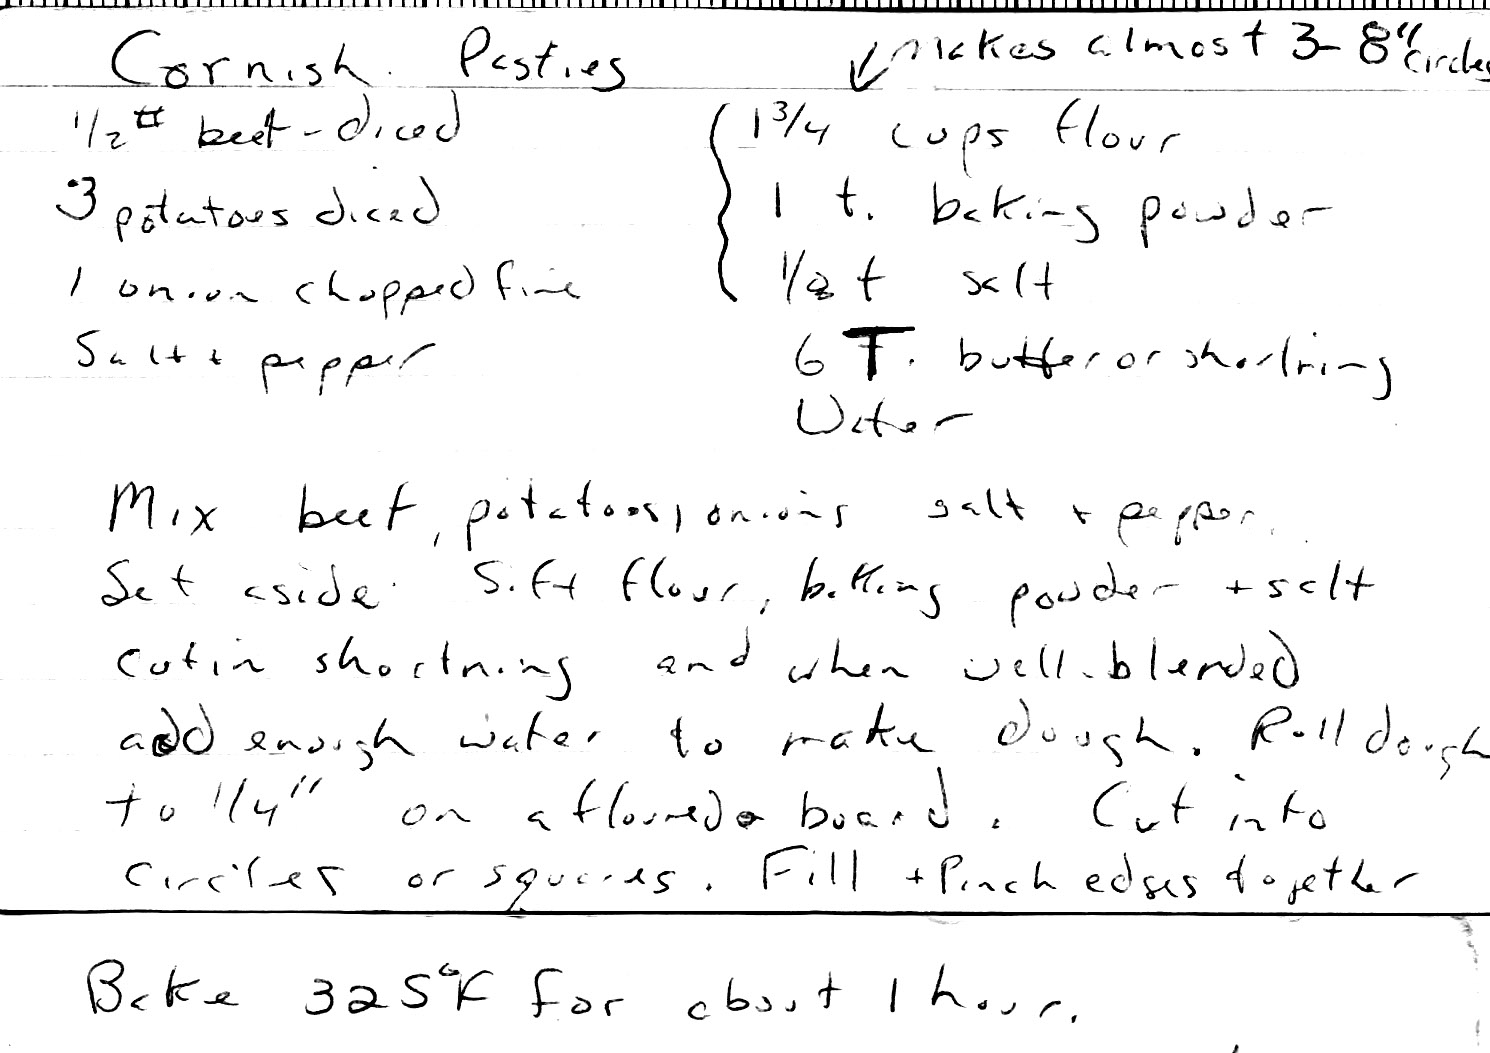 Cornish Pasties
Makes almost 3- 8" circles
1/2# beef-diced
3 potatoes diced
1 onion chopped fine
Salt + pepper
1 3/4 cups flour
1 t. baking powder
t salt
6 T. butter or shortning
Water
Mix beef, potatoes, onions salt + pepper.
Set aside. Sift flour, baking powder + salt
cut in shortning and when well-blended
add enough water to make dough. Roll dough
to 1/4" on a floured board. Cut into
circles or squares. Fill + Pinch edges together
Bake 325°F for about 1 hour.